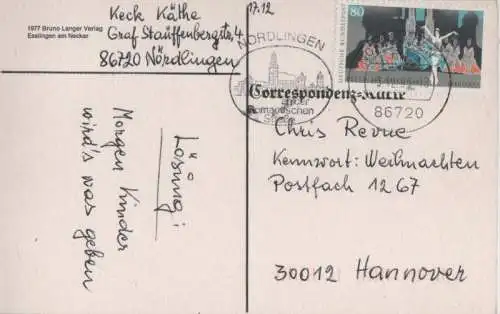 1977 Bruno Langer Verlag
Esslingen am Neckar
Keck Käthe
Graf Stauffenbergstr. 4
86720 Nördlingen
Lösung:
Morgen Kinder
wird's was geben
17.12
NÖRDLINGEN
an der
Romantischen
Straße
86720
80
DEUTSCHE BUNDESPOST
Correspondenz-Karte
Chris Revue
Kennwort: Weihnachten
Postfach 1267
30012 Hannover